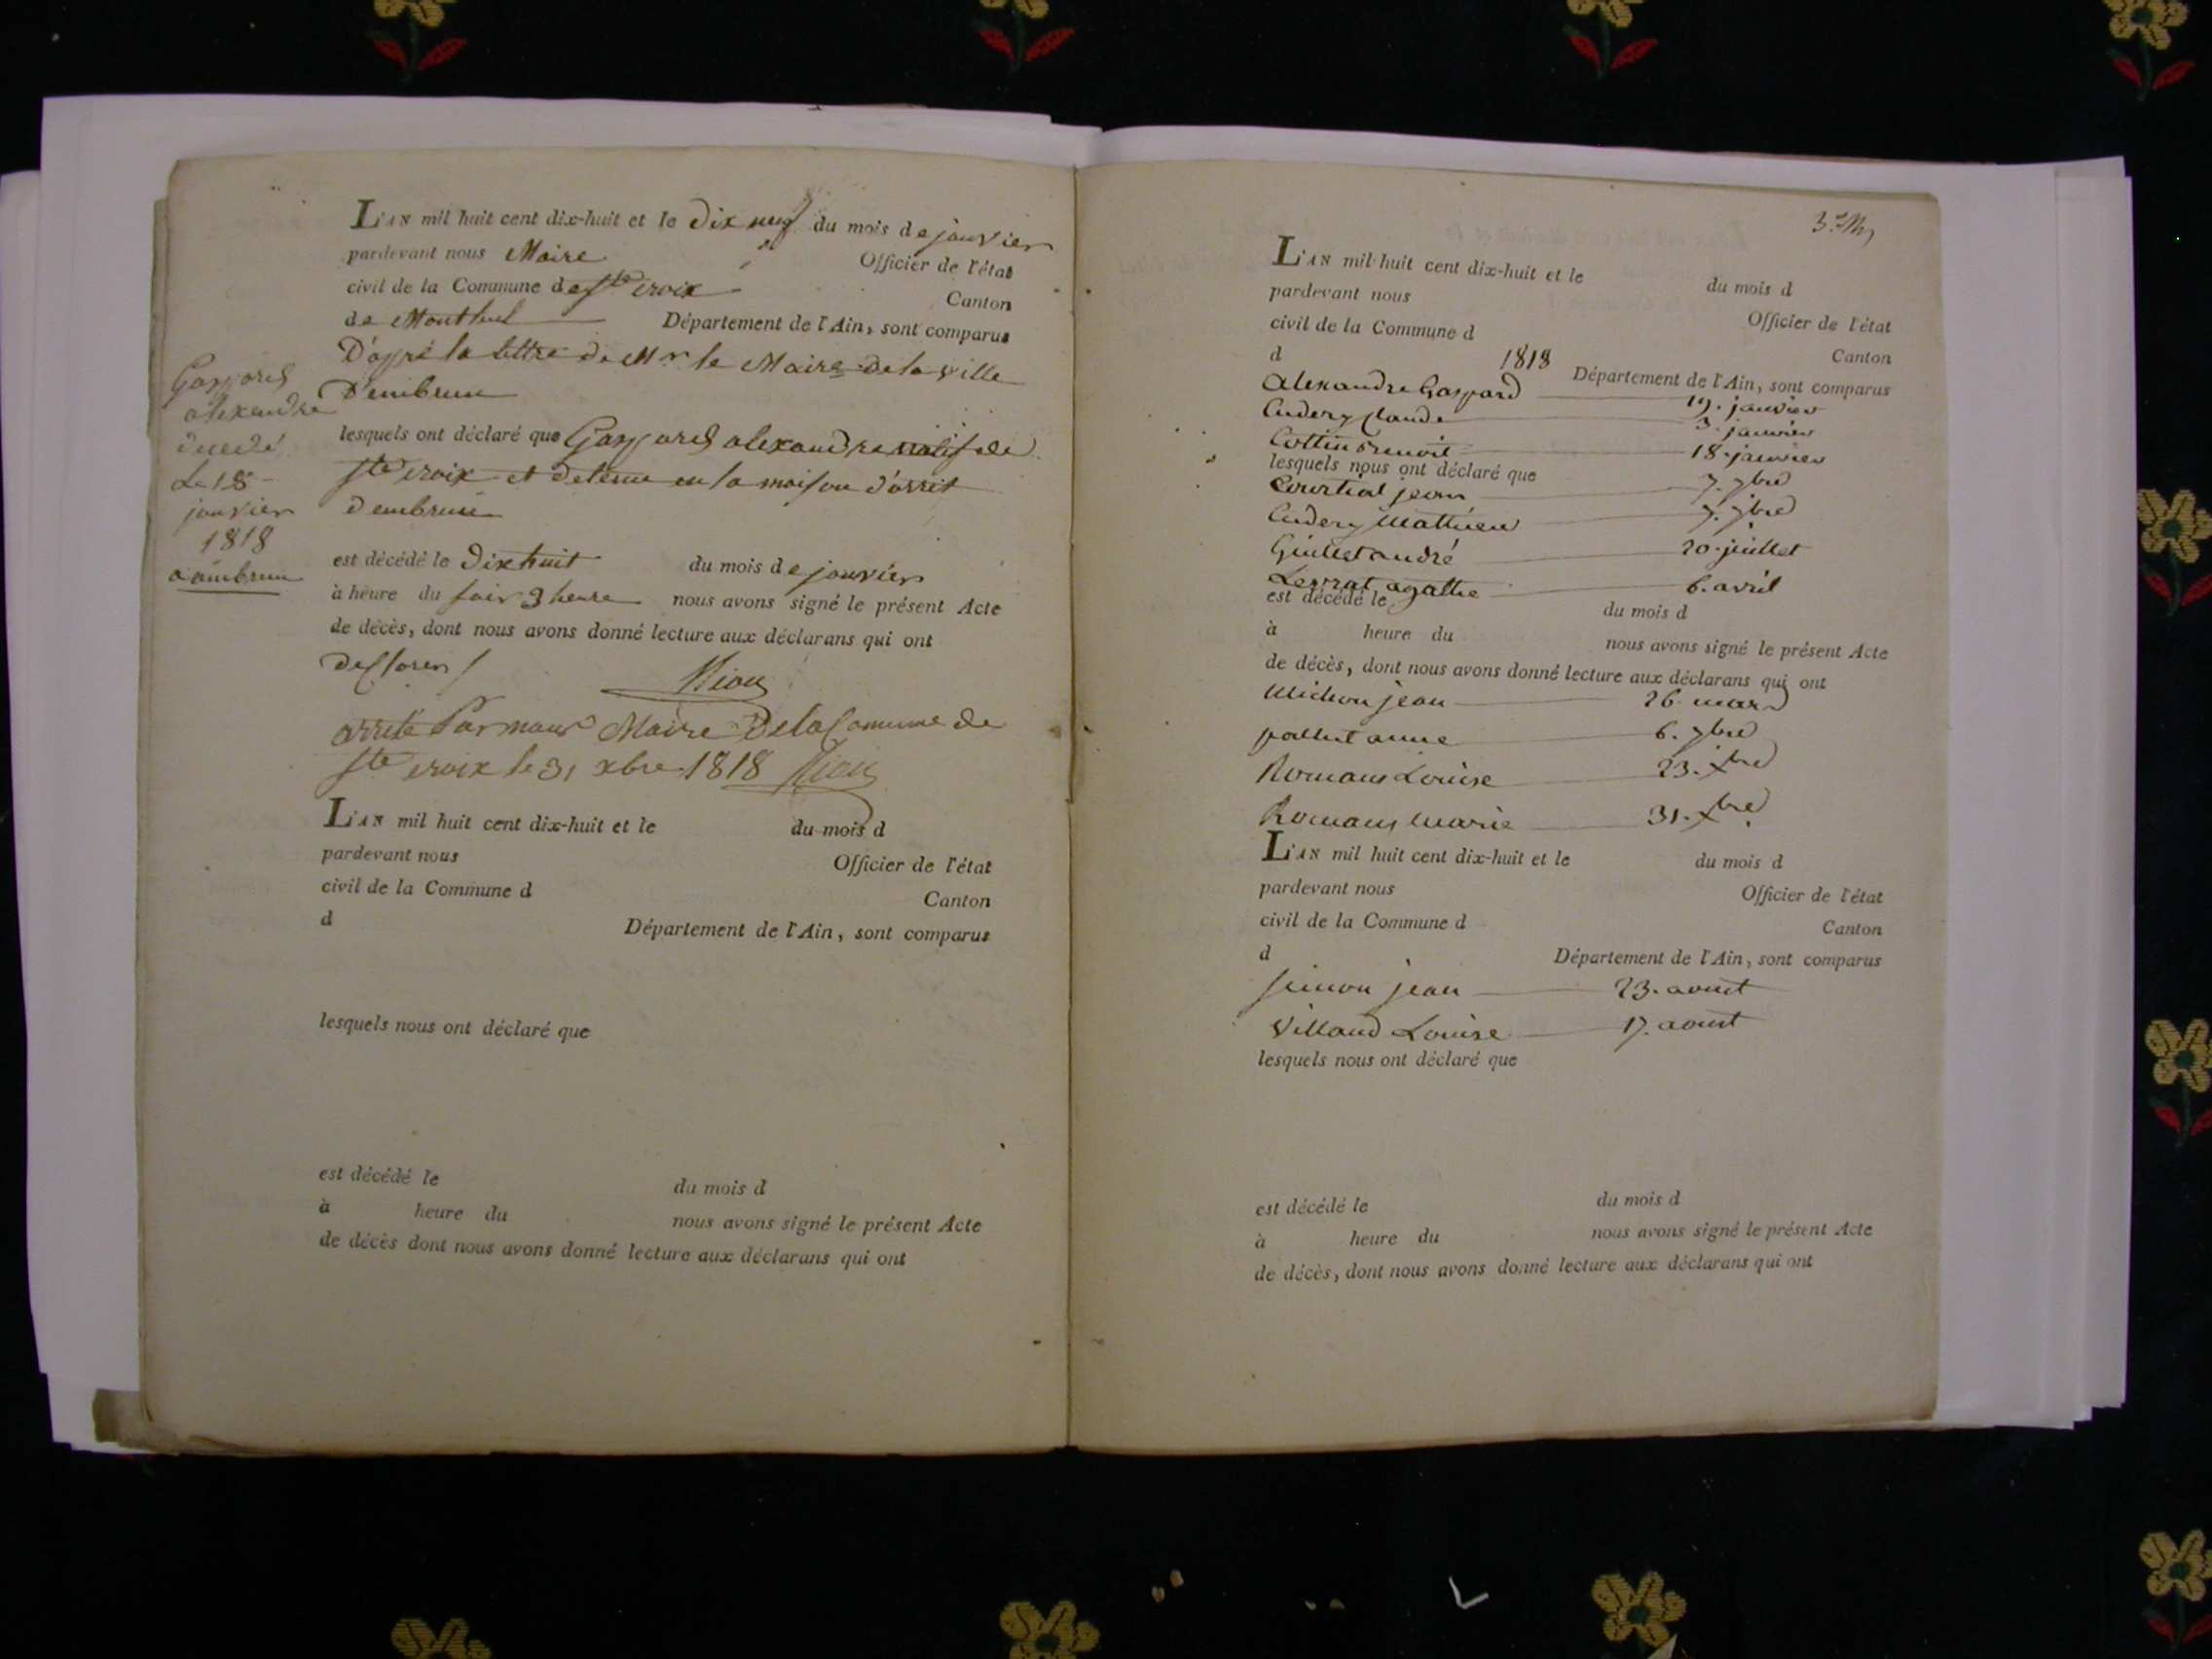 L'AN mil huit cent dix-huit et le dix neuf du mois de janvier
pardevant nous Maire Officier de l'état
civil de la Commune de Ste croix Canton
de Montluel Département de l'Ain, sont comparus
D'apré la lettre de Mr le Maire de la ville
D'embrun
lesquels ont déclaré que Gaspard alexandre natif de
Ste croix et detenu en la maison d'arret
d'embrun
est décédé le Dix huit du mois de janvier
à heure du soir 3 heure nous avons signé le présent Acte
de décès, dont nous avons donné lecture aux déclarans qui ont
arrité Par nous Maire De la Comune de
Ste croix le 31 xbre 1818
Gaspard
alexandre
decedé
Le 18
janvier
1818
a ambrun
L'AN mil huit cent dix-huit et le du mois d
pardevant nous Officier de l'état
civil de la Commune d Canton
d Département de l'Ain, sont comparus
lesquels nous ont déclaré que
est décédé le du mois d
à heure du nous avons signé le présent Acte
de décès dont nous avons donné lecture aux déclarans qui ont
L'AN mil huit cent dix-huit et le du mois d
pardevant nous Officier de l'état
civil de la Commune d Canton
d 1818 Département de l'Ain, sont comparus
alexandre Gaspard 19. janvier
Cudery Claude 3. janvier
Cottin Benoit 18. janvier
lesquels nous ont déclaré que
Courtial jean 7. 7bre
Cudery Mathieu 7. 7bre
Guillet andré 20. juillet
Lerrat agathe 6. avril
est décédé le du mois d
à heure du nous avons signé le présent Acte
de décès, dont nous avons donné lecture aux déclarans qui ont
Michon jean 26. mars
pallut anne 6. 7bre
Romans Louise 23. xbre
Romans Marie 31. xbre
L'AN mil huit cent dix-huit et le du mois d
pardevant nous Officier de l'état
civil de la Commune d Canton
d Département de l'Ain, sont comparus
Simon jean 23. aoust
Villaud Louise 17. aoust
lesquels nous ont déclaré que
est décédé le du mois d
à heure du nous avons signé le présent Acte
de décès, dont nous avons donné lecture aux déclarans qui ont